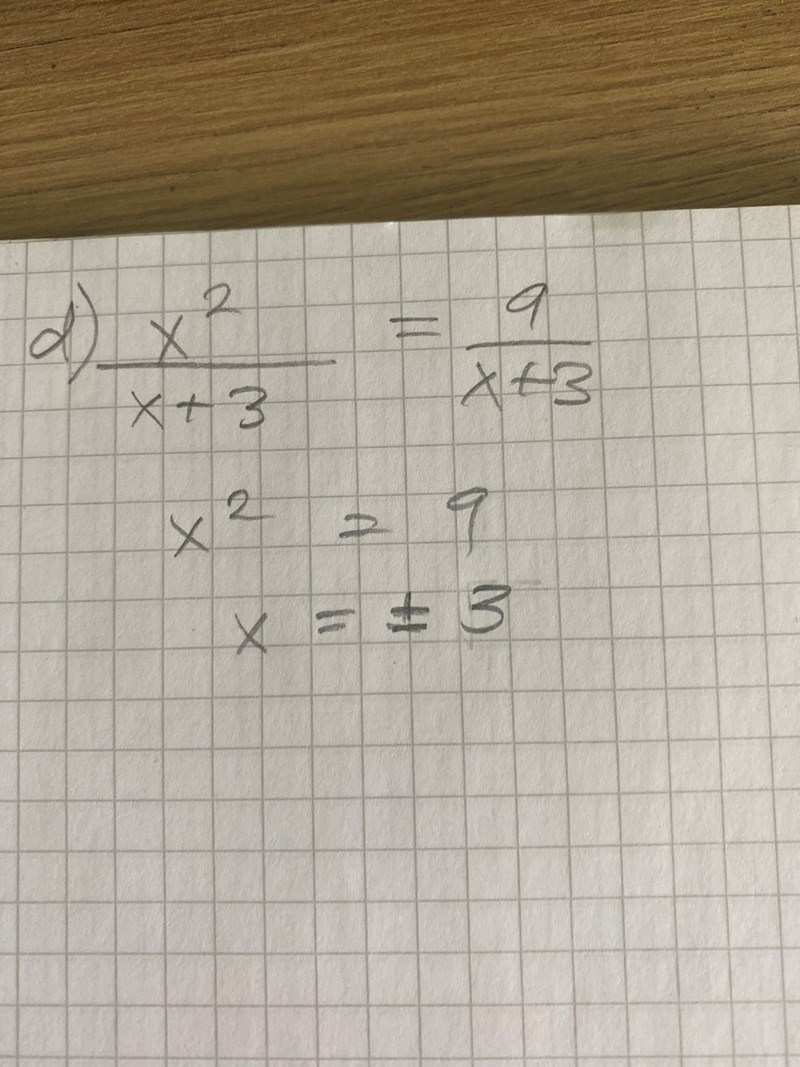 d) x²/(x+3) = 9/(x+3)
x² = 9
x = ± 3